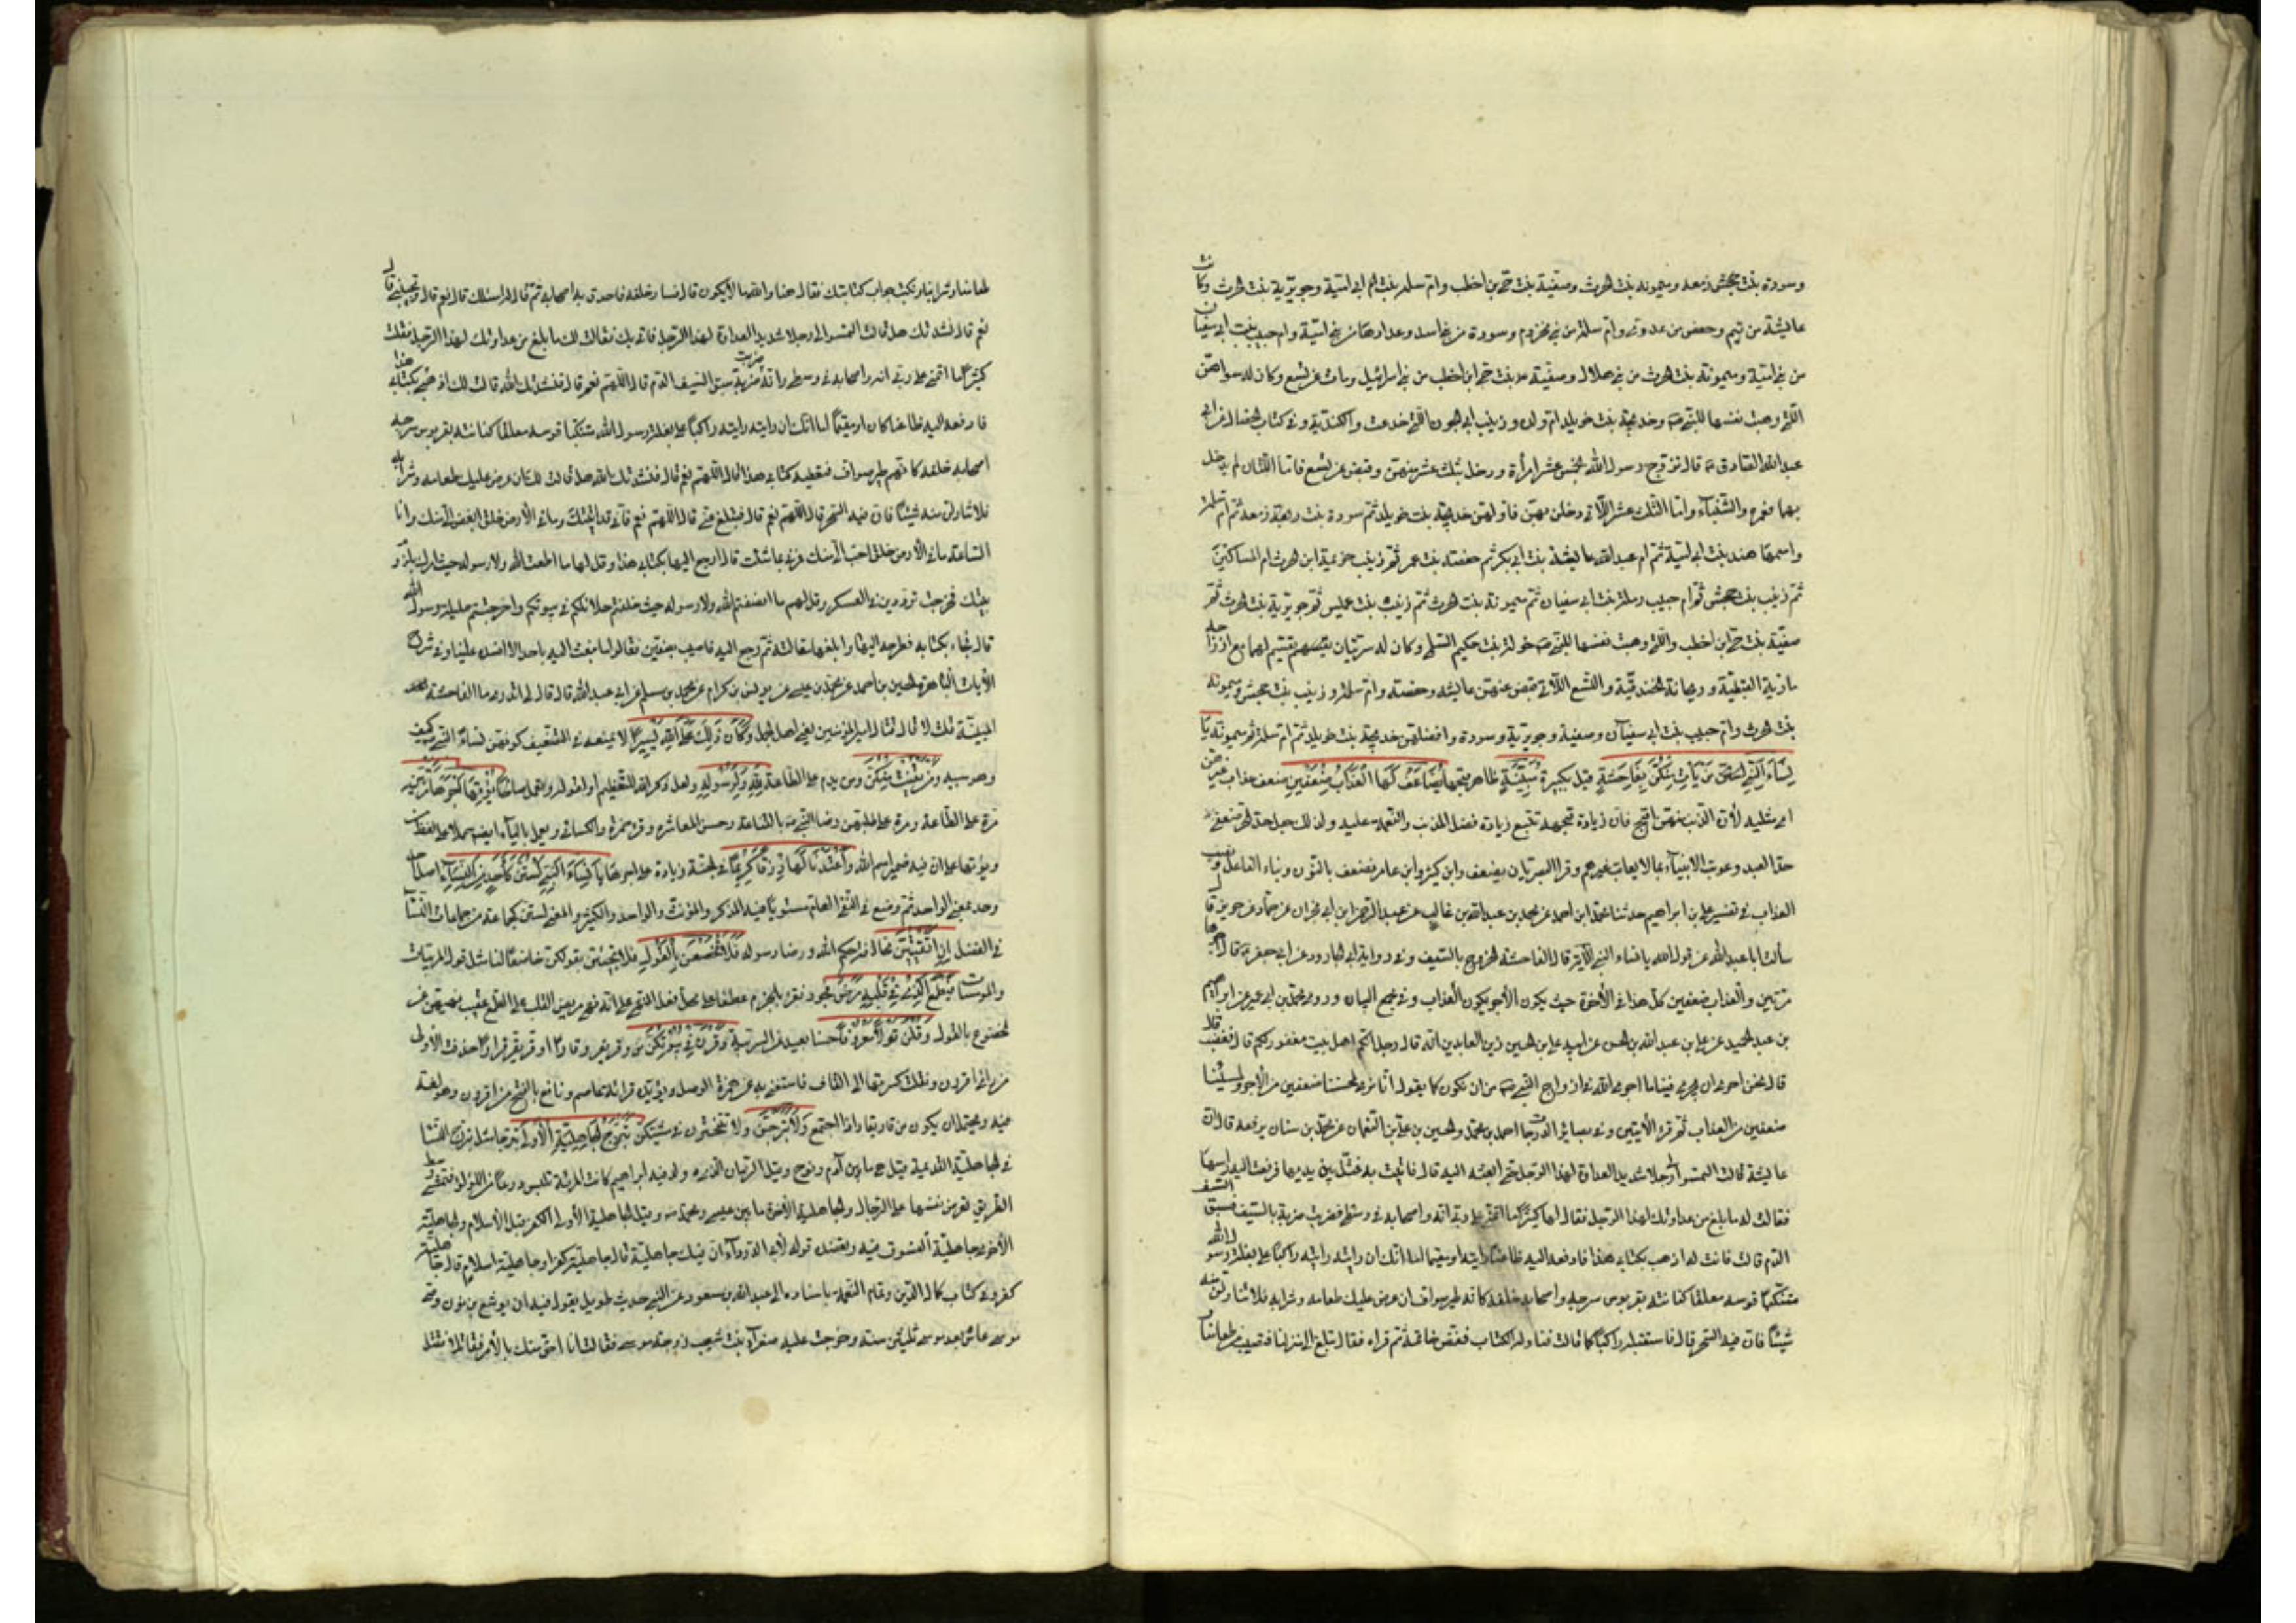 وسودة بنت زمعه وميمونه بنت الحرث وصفية بنت حي بن اخطب وام سلمه بنت ابي امية وجويرية بنت الحرث وكانت
عايشة من تيم وحفص من عدي وام سلمة من بني مخزوم وسودة من بني اسد وعدادها من بني امية وام حبيب بنت ابي سفيان
من بني امية وميمونة بنت الحرث من بني هلال وصفية بنت حي ابن اخطب من بني اسرائيل ومات عن تسع وكان له سواهن
اللتي وهبت نفسها للنبي ص وخديجة بنت خويلد ام ولده وزينب ابي الجون اللتي خدعت والكندية وفي كتاب الخصال عن ابي
عبد الله الصادق قال تزوج رسول الله بخمس عشر امرأة ودخل بثلث عشر منهن وقبض عن تسع فاما اللتان لم يدخل
بها فعمرة والشنباء واما الثلث عشر اللاتي دخل بهن فاولهن خديجة بنت خويلد ثم سودة بنت زمعه ثم ام سلمة
واسمها هند بنت ابي امية ثم ام عبد الله عايشة بنت ابي بكر ثم حفصة بنت عمر ثم زينب خزيمة ابن الحرث ام المساكين
ثم زينب بنت جحش ثم ام حبيب رملة بنت ابي سفيان ثم ميمونة بنت الحرث ثم زينب بنت عميس ثم جويرية بنت الحرث ثم
صفية بنت حي ابن اخطب واللتي وهبت نفسها للنبي ص خولة بنت حكيم السلمي وكان له سريتان يقسم لهما مع ازواجه
مارية القبطية وريحانة الخندفية والتسع اللاتي قبض عنهن عايشه وحفصه وام سلمة وزينب بنت جحش وميمونة
بنت الحرث وام حبيب بنت ابي سفيان وصفية وجويرية وسودة وافضلهن خديجة بنت خويلد ثم ام سلمة ثم ميمونة يا
نساء النبي من يأت منكن بفاحشة قيل بكبيرة مبينة ظاهر قبحها يضاعف لها العذاب ضعفين ضعف عذاب غيرهن
اي مثليه لان الذنب منهن اقبح فان زيادة قبحه تتبع زيادة فضل المذنب والنعمة عليه ولذلك جعل حد الحر ضعفي
حد العبد وعوتب الانبياء بما لا يعاتب غيرهم وقرأ البصريان يضعف وابن كثير وابن عامر نضعف بالنون وبناء الفاعل ونصب
العذاب في تفسير علي بن ابراهيم حدثنا محمد ابن احمد عن محمد بن عبد الله بن غالب عن عبد الرحمن ابن ابي نجران عن حماد عن حريز قال
سألت ابا عبد الله عن قول الله يا نساء النبي الآية قال الفاحشة الخروج بالسيف وفي رواية ابي الجارود عن ابي جعفر قال اجرها
مرتين والعذاب ضعفين كل هذا في الآخرة حيث يكون الاجر يكون العذاب وفي مجمع البيان وروى محمد بن ابي عمير عن ابراهيم
بن عبد الحميد عن علي بن عبد الله بن الحسين عن ابيه علي بن الحسين زين العابدين انه قال رجل انكم اهل بيت مغفور لكم قال فغضب
قال نحن احرى ان يجري فينا ما اجرى الله في ازواج النبي ص من ان نكون كما يقول انا نرى لمحسننا ضعفين من الاجر ولمسيئنا
ضعفين من العذاب ثم قرء الآيتين وفي بصائر الدرجات احمد بن محمد والحسين بن علي بن النعمان عن محمد بن سنان يرفعه قال ان
عايشة قالت التمسوا لي رجلا شديد العداوة لهذا الرجل حتى ابعثه اليه قال فاتيت به فمثل بين يديها فرفعت اليه راسها
فقالت له ما بلغ من عداوتك لهذا الرجل فقال لها كثيرا ما اتمنى على ربي انه واصحابه في وسطي فضرب ضربة بالسيف فسبق السيف
الدم قالت فانت له اذهب بكتابي هذا فادفعه اليه ظاعنا رايته او مقيما اما انك ان رايته رايته راكبا على بغلة رسول الله
متنكبا قوسه معلقا كنانته بقربوس سرجه واصحابه خلفه كانه طير صواف ان عرض عليك طعامه وشرابه فلا تناولن منه
شيئا فان فيه السحر قال فاستقبلته راكبا كما قالت فناوله الكتاب ففض خاتمه ثم قراه فقال تبلغ الى منزلنا فتصيب من طعامنا
طعامنا وشرابنا ونكتب جواب كتابك فقال هذا والله ما لا يكون قال فسار خلفه فاحدق به اصحابه ثم قال له اسئلك قال نعم قال وتجيبني قال
نعم قال نشدتك هل قالت التمسوا لي رجلا شديد العداوة لهذا الرجل فاتي بك فقالت لك ما بلغ من عداوتك لهذا الرجل فقلت
كثيرا ما اتمنى على ربي انه واصحابه في وسطي واني ضربت ضربة سبق السيف الدم قال اللهم نعم قال فنشدتك الله قالت لك اذهب بكتابي هذا
فادفعه اليه ظاعنا كان او مقيما اما انك ان رايته رايته راكبا على بغلة رسول الله متنكبا قوسه معلقا كنانته بقربوس سرجه
اصحابه خلفه كانهم طير صواف فتعطيه كتابي هذا قال اللهم نعم قال فنشدتك بالله هل قالت لك ان عرض عليك طعامه وشرابه
فلا تناولن منه شيئا فان فيه السحر قال اللهم نعم قال فمبلغ عني قال اللهم نعم فاني قد اتيتك وما في الارض خلق ابغض الي منك وانا
الساعة ما في الارض خلق احب الي منك فمرني بما شئت قال ارجع اليها بكتابي هذا وقل لها ما اطعت الله ولا رسوله حيث امرك بلزوم
بيتك فخرجت ترددين في العسكر وقل لهم ما انصفتم الله ولا رسوله حيث خلفتم حلائلكم في بيوتكم واخرجتم حليلة رسول الله
قال فجاء بكتابه فطرحه اليها وابلغها مقالته ثم رجع اليه فاصيب بصفين فقالوا ما نبعث اليه باحد الا افسده علينا وفي شرح
الآيات الباهرة الحسين بن احمد عن محمد بن عيسى عن يونس بن كرام عن محمد بن مسلم عن ابي عبد الله قال قال لي اتدري ما الفاحشة
المبينة قلت لا قال قتال امير المؤمنين يعني اهل الجمل وكان ذلك على الله يسيرا لا يمنعه عن التضعيف كونهن نساء النبي وكيف
وهو سببه ومن يقنت منكن ومن يدم على الطاعة لله ولرسوله ولعل ذكر الله للتعظيم او لقوله وتعمل صالحا نؤتها اجرها مرتين
مرة على الطاعة ومرة على طلبهن رضا النبي ص بالقناعة وحسن المعاشرة وقرء حمزة والكسائي ويعمل بالياء ايضا حملا على اللفظ
ويؤتها على ان فيه ضمير اسم الله واعتدنا لها رزقا كريما في الجنة زيادة على اجرها يا نساء النبي لستن كأحد من النساء اصل احد
وحد بمعنى الواحد ثم وضع في النفي العام مستويا فيه المذكر والمؤنث والواحد والكثير والمعنى لستن كجماعة من جماعات النساء
في الفضل ان اتقيتن مخالفة حكم الله ورضا رسوله فلا تخضعن بالقول فلا تجئن بقولكن خاضعا لينا مثل قول المريبات
والمومسات فيطمع الذي في قلبه مرض فجور وقرء بالجزم عطفا على محل فعل النهي على انه نهي مريض القلب عن الطمع عقيب نهيهن عن
الخضوع بالقول وقلن قولا معروفا حسنا بعيدا عن الريبة وقرن في بيوتكن من وقر يقر وقارا او قر يقر قرارا حذفت الاولى
من رائي اقررن ونقلت كسرتها الى القاف فاستغنى به عن همزة الوصل ويؤيده قرائة عاصم ونافع بالفتح من اقررن وهو لغة
فيه ويحتمل ان يكون من قار يقار اذا اجتمع ولا تبرجن ولا تتبخترن في مشيكن تبرج الجاهلية الاولى تبرجا مثل تبرج النساء
في الجاهلية القديمة قيل هي ما بين آدم ونوح وقيل الزمان الذي ولد فيه ابراهيم كانت المرئة تلبس درعا من اللؤلؤ فتمشي وسط
الطريق تعرض نفسها على الرجال والجاهلية الاخرى ما بين عيسى ومحمد ص وقيل الجاهلية الاولى الكفر قبل الاسلام والجاهلية
الاخرى جاهلية الفسوق فيه ويعضده قوله لابي الدرداء ان فيك جاهلية قال جاهلية كفر او جاهلية اسلام قال جاهلية
كفر وفي كتاب كمال الدين وتمام النعمة باسناده الى عبد الله بن مسعود عن النبي حديث طويل يقول فيه ان يوشع بن نون وصي
موسى عاش بعد موسى ثلثين سنة وخرجت عليه صفراء بنت شعيب زوجة موسى فقالت انا احق منك بالأمر فقاتلها فقتل